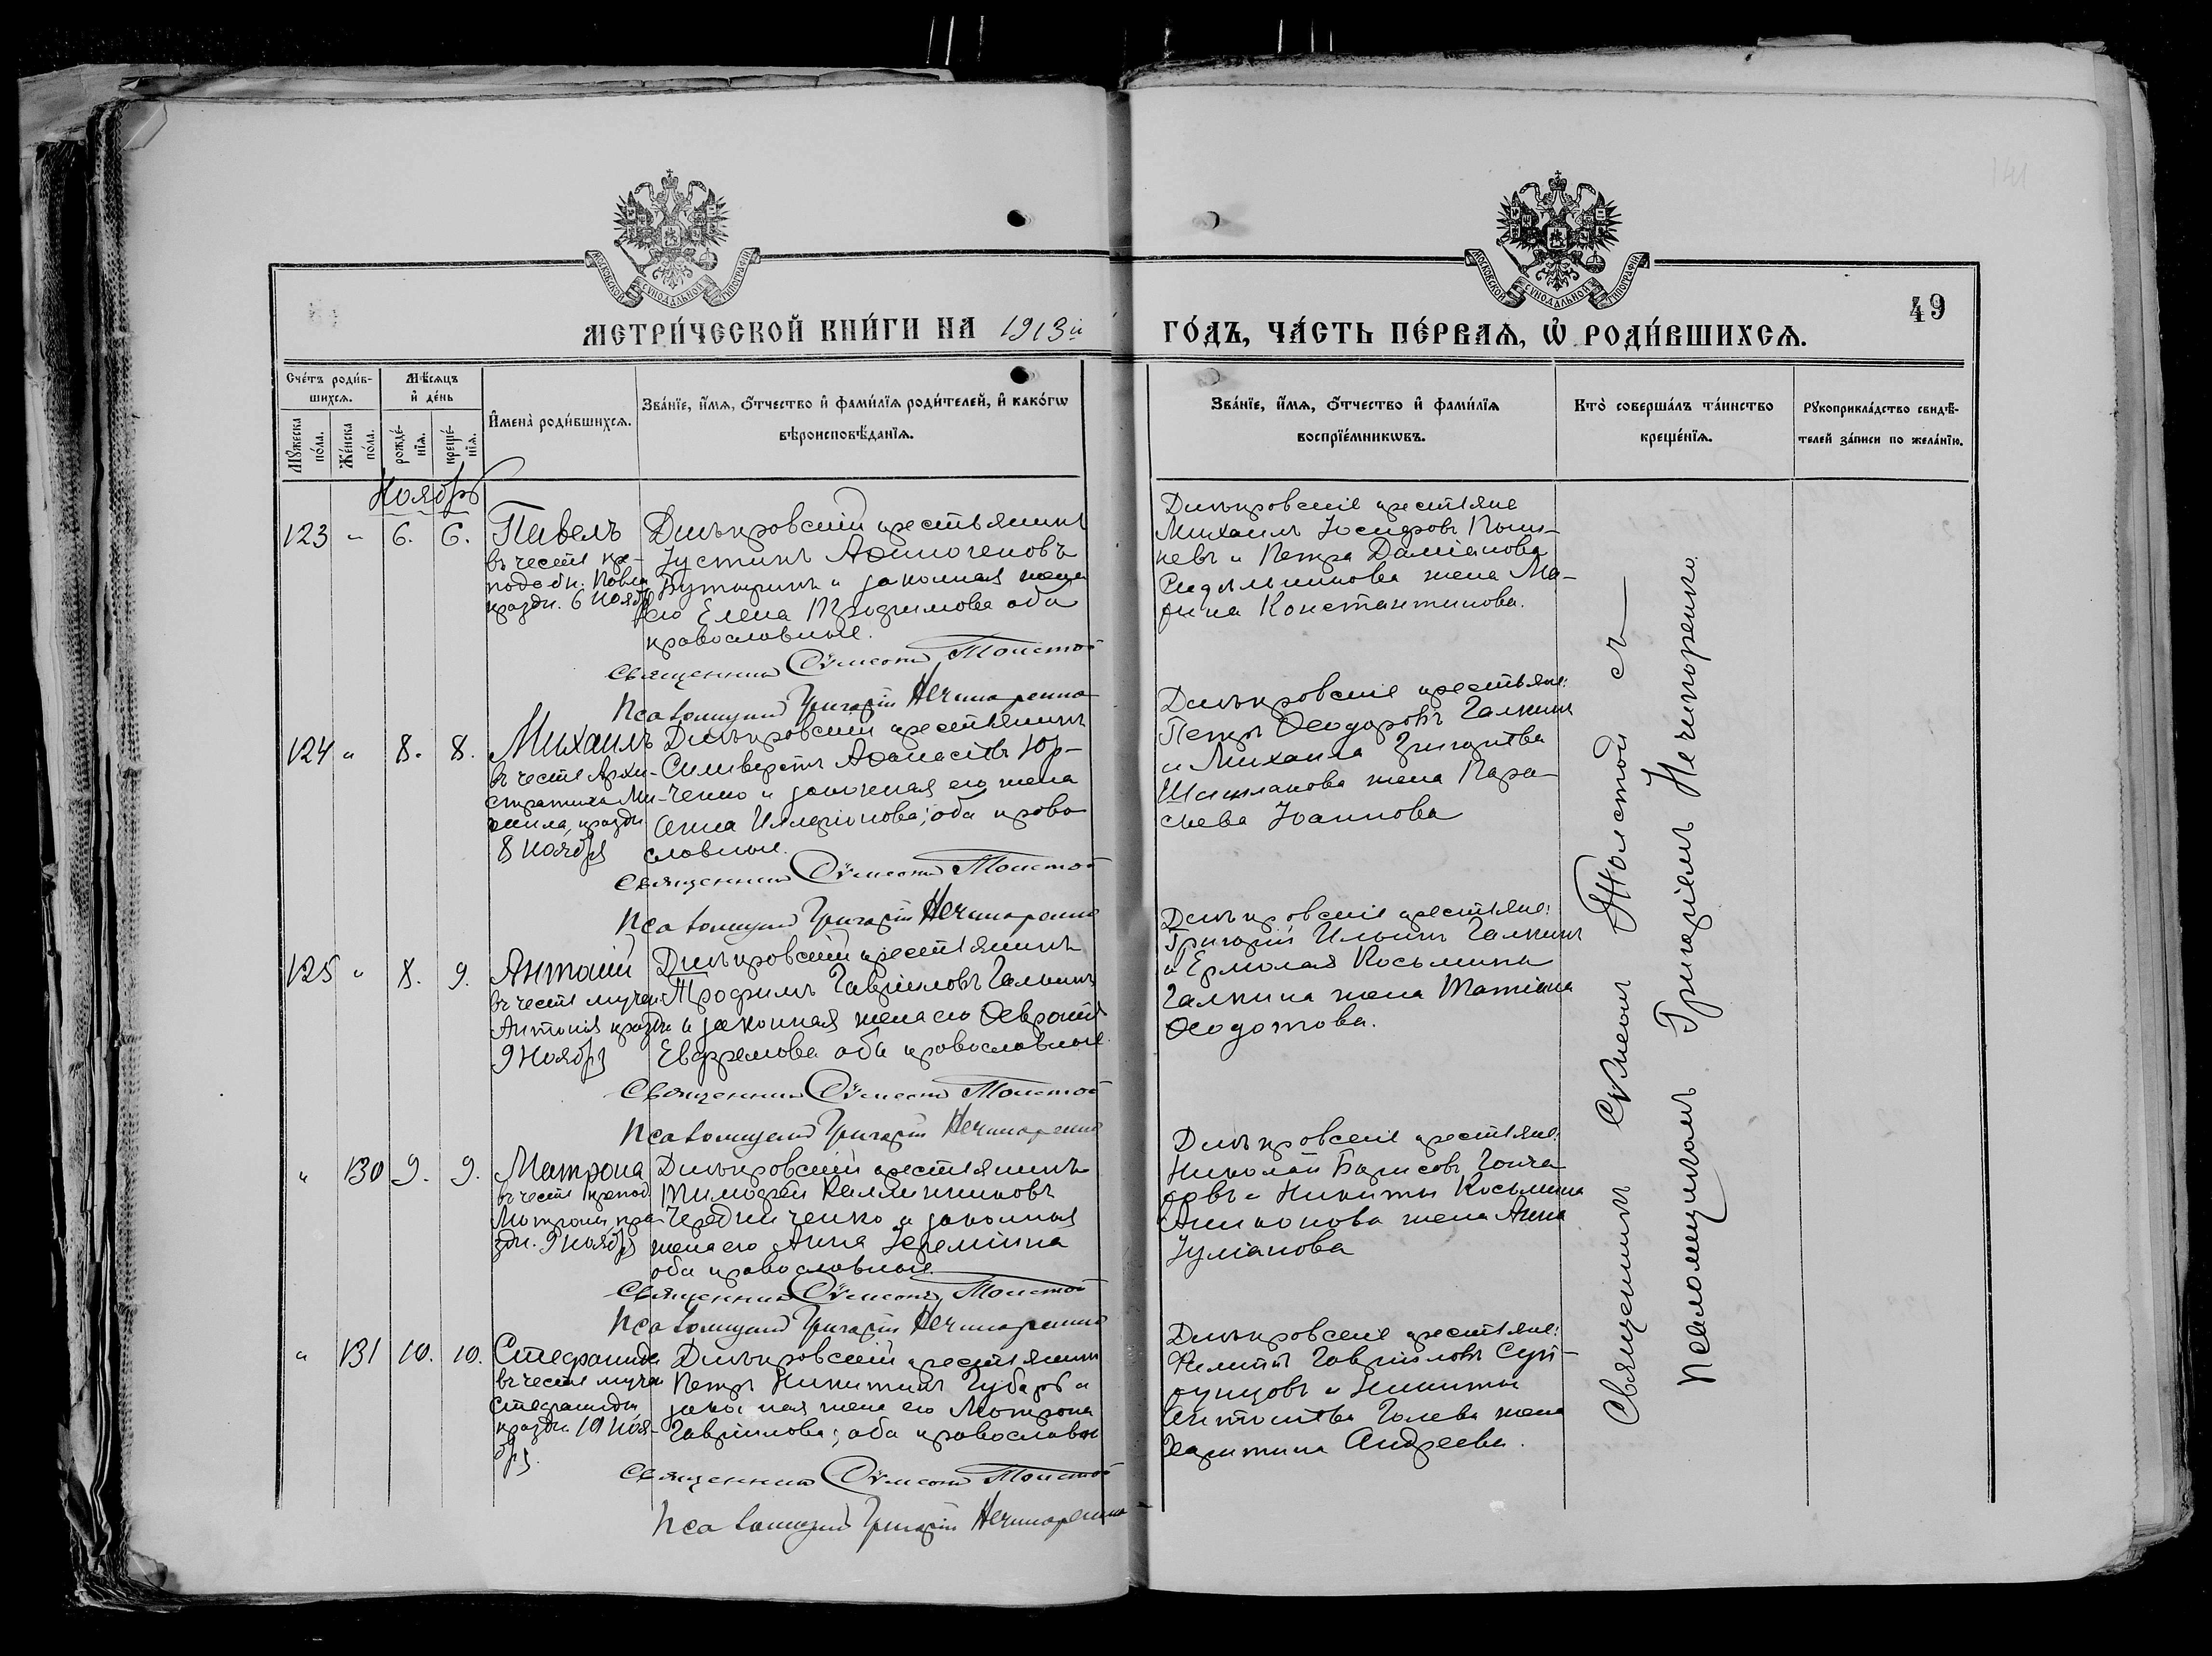 МОСКОВСКОЙ СѴНОДАЛЬНОЙ ТИПОГРАФІИ
МОСКОВСКОЙ СѴНОДАЛЬНОЙ ТИПОГРАФІИ
49
МЕТРИ́ЧЕСКОЙ КНИ́ГИ НА 1913й ГО́ДЪ, ЧА́СТЬ ПЕ́РВАѦ, Ѡ҆ РОДИ́ВШИХСѦ.
Сче́тъ роди́в-
шихсѧ.
Мꙋ́жеска по́ла.
Же́нска по́ла.
Мѣ́сѧцъ
и҆ де́нь
рожде́-
нїѧ.
креще́-
нїѧ.
И҆мена̀ роди́вшихсѧ.
Зва́нїе, и҆́мѧ, ѻ҆́тчество и҆ фами́лїѧ роди́телей, и҆ како́гѡ
вѣроисповѣ́данїѧ.
Зва́нїе, и҆́мѧ, ѻ҆́тчество и҆ фами́лїѧ
воспрїе́мникѡвъ.
Кто̀ соверша́лъ та́инство
креще́нїѧ.
Рꙋкоприкла́дство свидѣ́-
телей за́писи по жела́нїю.
Ноябрь
123 " 6. 6.
Павелъ
въ честь пре-
подобн. Павла
праздн. 6 Ноября
Днѣпровскій крестьянинъ
Іустинъ Аѳиногеновъ
Бутыринъ и законная жена
его Елена Трофимова оба
православные.
Священникъ Сѵмеонъ Толстой
Псаломщикъ Григорій Нечипоренко
Днѣпровскіе крестьяне
Михаилъ Іосифовъ
и Петра Даміанова
жена Ма-
рина Константинова.
124 " 8. 8.
Михаилъ
въ честь Архи-
стратига Ми-
хаила, праздн
8 Ноября
Днѣпровскій крестьянинъ
Силиверстъ Аѳанасіевъ Юр-
ченко и законная его жена
Анна Илларіонова; оба право
славные.
Священникъ Сѵмеонъ Толстой
Псаломщикъ Григорій Нечипоренко
Днѣпровскіе крестьяне:
Петръ Ѳеодоровъ Галкинъ
и Михаила Григорьева
жена Пара-
скева Іоаннова
125 " 8. 9.
Антоній
въ честь мучен
Антонія праздн
9 Ноября
Днѣпровскій крестьянинъ
Трофимъ Гавріиловъ Галкинъ
и законная жена его Ѳевронія
Евфремова оба православные.
Священникъ Сѵмеонъ Толстой
Псаломщикъ Григорій Нечипоренко
Днѣпровскіе крестьяне:
Григорій Ильинъ Галкинъ
и Ермолая Косьмина
Галкина жена Татіана
Ѳеодотова.
" 130 9. 9.
Матрона
въ честь препод.
Матроны пра-
здн. 9 Ноября
Днѣпровскій крестьянинъ
Тимофей Каллинниковъ
Чередниченко и законная
жена его Анна Іереміина
оба православные.
Священникъ Сѵмеонъ Толстой
Псаломщикъ Григорій Нечипоренко
Днѣпровскіе крестьяне:
Николай Борисовъ Гонча
ровъ и Никиты Косьмина
жена Анна
Іуліанова
" 131 10. 10.
Стефанида
въ честь мучен
Стефаниды
праздн. 10 Ноя-
бря.
Днѣпровскій крестьянинъ
Петръ Никитинъ Губарь и
законная жена его Матрона
Гавріилова; оба православн
Священникъ Сѵмеонъ Толстой
Псаломщикъ Григорій Нечипоренко
Днѣпровскіе крестьяне:
Филиппъ Гавріиловъ Суп-
руновъ и Никиты
Антоніева Голева жена
Харитина Андреева.
Священникъ Сѵмеонъ Толстой съ
псаломщикомъ Григоріемъ Нечипоренко.